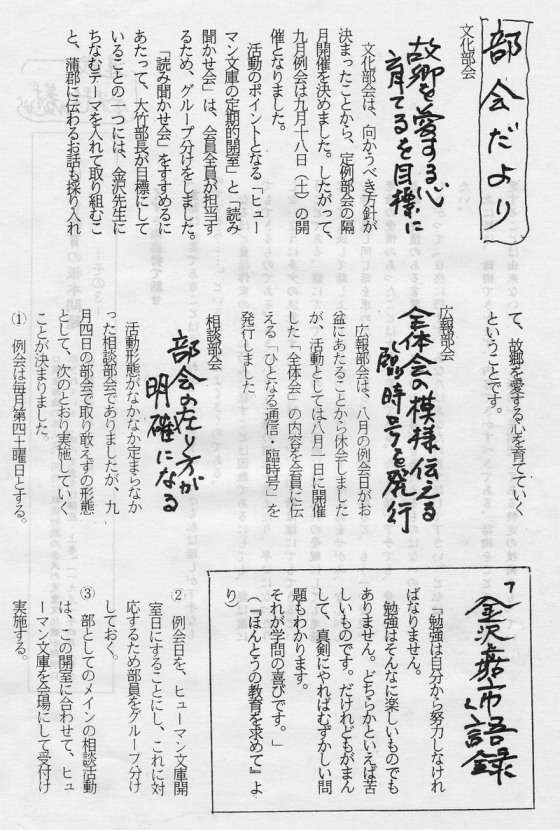 部会だより
文化部会
故郷を愛する心
育てるを目標に
文化部会は、向かうべき方針が
決まったことから、定例部会の隔
月開催を決めました。したがって、
九月例会は九月十八日（土）の開
催となりました。
活動のポイントとなる「ヒュー
マン文庫の定期的開室」と「読み
聞かせ会」は、会員全員が担当す
るため、グループ分けをしました。
「読み聞かせ会」をすすめるに
あたって、大竹部長が目標にして
いることの一つには、金沢先生に
ちなむテーマを入れて取り組むこ
と、蒲郡に伝わるお話も採り入れ
て、故郷を愛する心を育てていく
ということです。
広報部会
全体会の模様伝える
「臨時号」を発行
広報部会は、八月の例会日がお
盆にあたることから休会しました
が、活動としては八月一日に開催
した「全体会」の内容を会員に伝
える「ひとなる通信・臨時号」を
発行しました
相談部会
部会の在り方が
明確になる
活動形態がなかなか定まらなか
った相談部会でありましたが、九
月四日の部会で取り敢えずの形態
として、次のとおり実施していく
ことが決まりました。
① 例会は毎月第四土曜日とする。
② 例会日を、ヒューマン文庫開
室日にすることにし、これに対
応するため部員をグループ分け
しておく。
③ 部としてのメインの相談活動
は、この開室に合わせて、ヒュ
ーマン文庫を会場にして受付け
実施する。
7
金沢嘉市語録
「勉強は自分から努力しなけれ
ばなりません。
勉強はそんなに楽しいものでも
ありません。どちらかといえば苦
しいものです。だけれどもがまん
して、真剣にやればむずかしい問
題もわかります。
それが学問の喜びです。」
（『ほんとうの教育を求めて』よ
り）